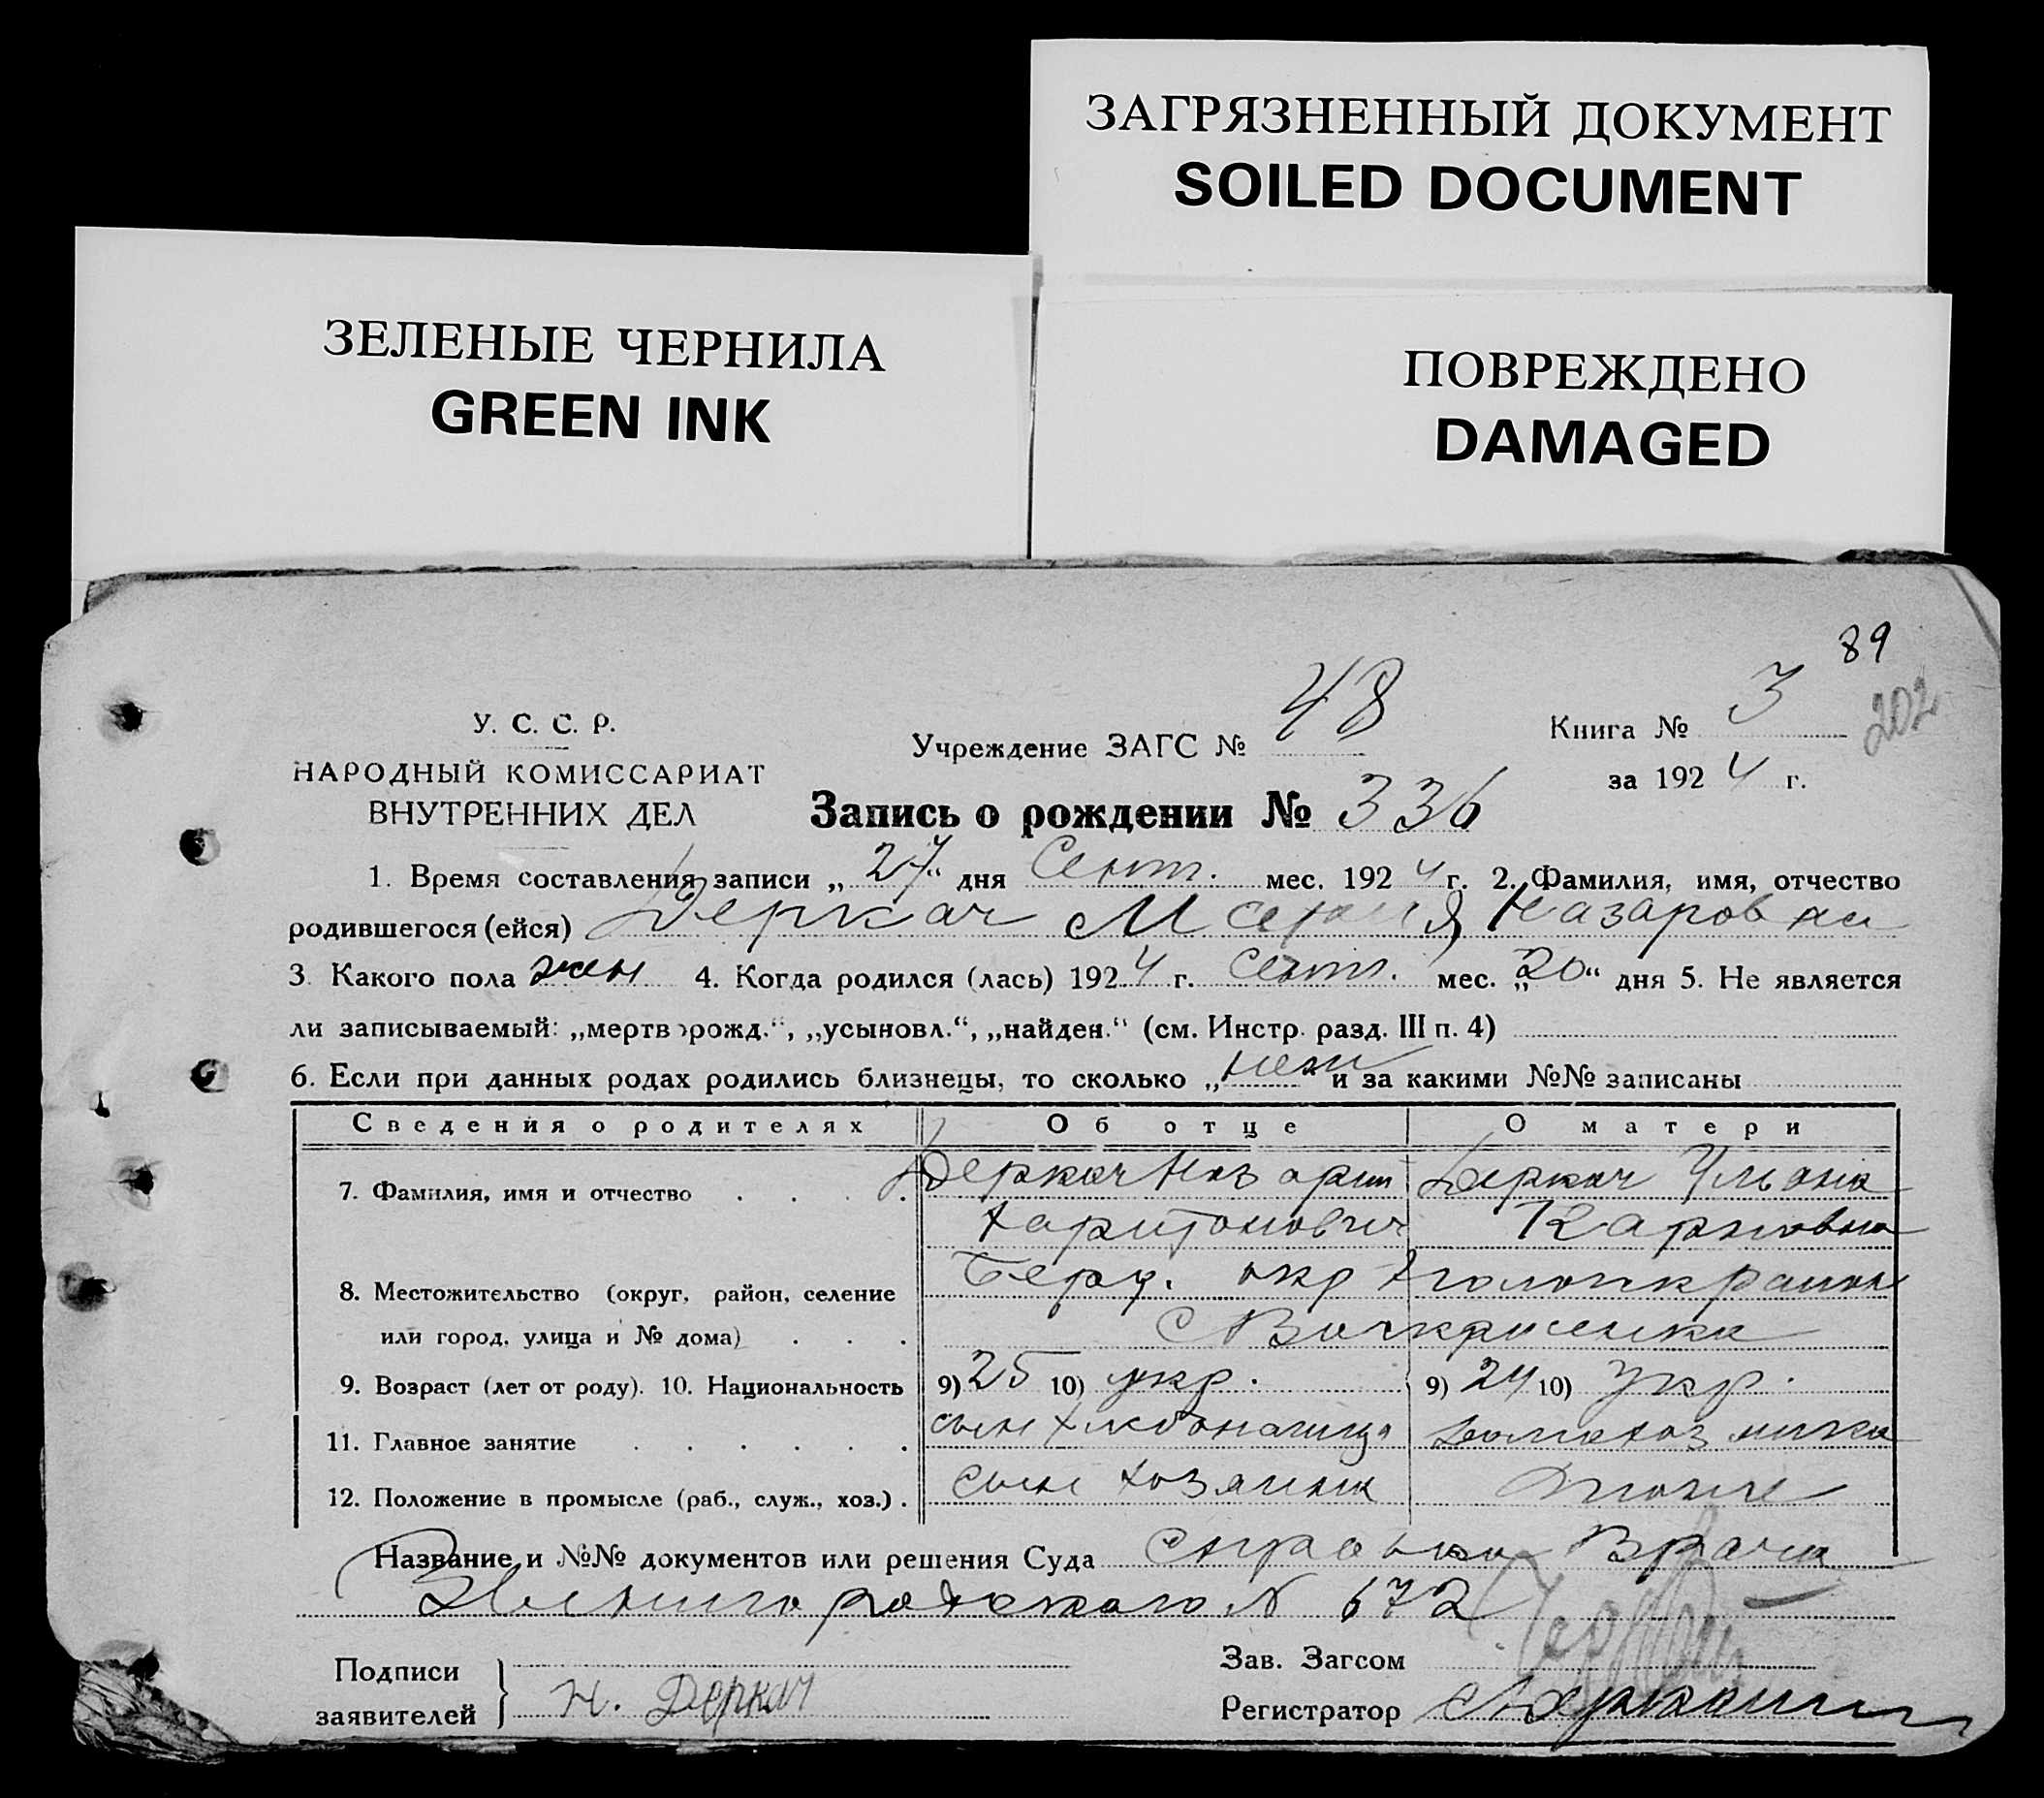 ЗАГРЯЗНЕННЫЙ ДОКУМЕНТ
SOILED DOCUMENT
ЗЕЛЕНЫЕ ЧЕРНИЛА
GREEN INK
ПОВРЕЖДЕНО
DAMAGED
89
202
У. С. С. Р.
НАРОДНЫЙ КОМИССАРИАТ
ВНУТРЕННИХ ДЕЛ
Учреждение ЗАГС № 48
Книга № 3
за 1924 г.
Запись о рождении № 336
1. Время составления записи „27“ дня Сент. мес. 1924 г. 2. Фамилия, имя, отчество
родившегося (ейся) Деркач Мария Назаровна
3. Какого пола жен 4. Когда родился (лась) 1924 г. Сент. мес. „20“ дня 5. Не является
ли записываемый: „мертворожд.“, „усыновл.“, „найден.“ (см. Инстр. разд. III п. 4)
6. Если при данных родах родились близнецы, то сколько „нет“ и за какими №№ записаны
Сведения о родителях Об отце О матери
7. Фамилия, имя и отчество . . . . Деркач Назарий Деркач Ульяна
Харитонович Карповна
8. Местожительство (округ, район, селение
или город, улица и № дома) . . .
окр
с
9. Возраст (лет от роду). 10. Национальность 9) 25 10) укр. 9) 24 10) укр.
11. Главное занятие . . . . . . сын
12. Положение в промысле (раб., служ., хоз.) . сын хозяина
Название и №№ документов или решения Суда Справка Врача
N 672
Подписи
заявителей
Н. Деркач
Зав. Загсом
Регистратор